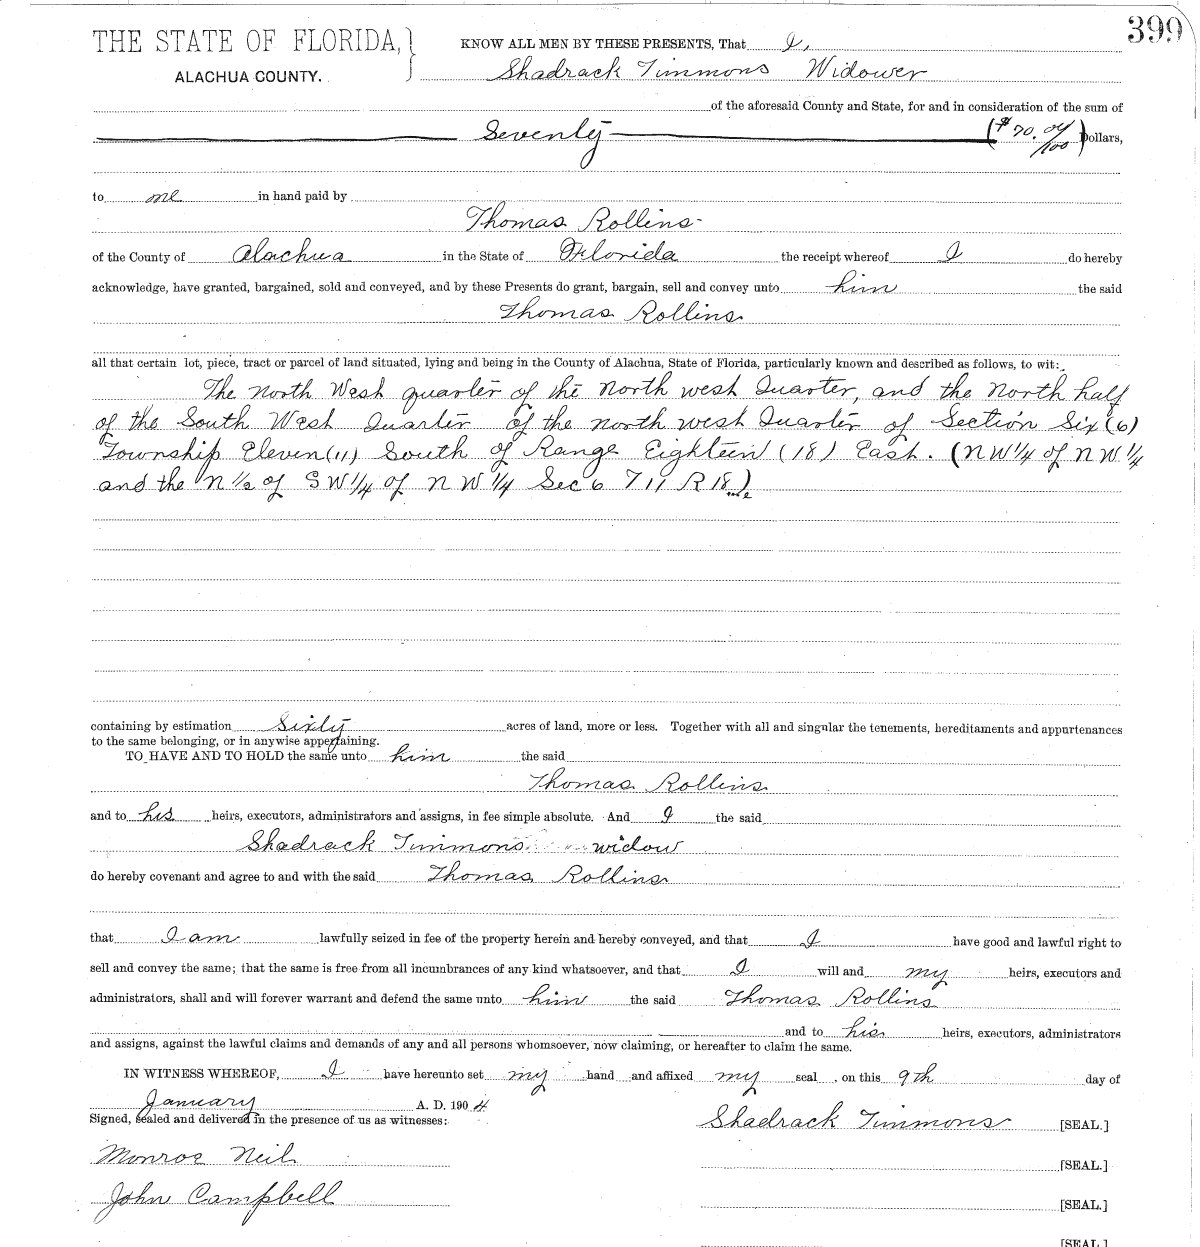 399
THE STATE OF FLORIDA,
ALACHUA COUNTY.
KNOW ALL MEN BY THESE PRESENTS, That I,
Shadrack Timmons Widower
of the aforesaid County and State, for and in consideration of the sum of
Seventy ($70. 04/100) Dollars,
to me in hand paid by
Thomas Rollins
of the County of Alachua in the State of Florida the receipt whereof I do hereby
acknowledge, have granted, bargained, sold and conveyed, and by these Presents do grant, bargain, sell and convey unto him the said
Thomas Rollins
all that certain lot, piece, tract or parcel of land situated, lying and being in the County of Alachua, State of Florida, particularly known and described as follows, to wit:
The North West quarter of the North west Quarter, and the North half
of the South West Quarter of the north west Quarter of Section Six (6)
Township Eleven (11) South of Range Eighteen (18) East. (N W 1/4 of N W 1/4
and the N 1/2 of S W 1/4 of N W 1/4 Sec 6 T 11 R 18)
containing by estimation Sixty acres of land, more or less. Together with all and singular the tenements, hereditaments and appurtenances
to the same belonging, or in anywise appertaining.
TO HAVE AND TO HOLD the same unto him the said
Thomas Rollins
and to his heirs, executors, administrators and assigns, in fee simple absolute. And I the said
Shadrack Timmons widow
do hereby covenant and agree to and with the said Thomas Rollins
that I am lawfully seized in fee of the property herein and hereby conveyed, and that I have good and lawful right to
sell and convey the same; that the same is free from all incumbrances of any kind whatsoever, and that I will and my heirs, executors and
administrators, shall and will forever warrant and defend the same unto him the said Thomas Rollins
and to his heirs, executors, administrators
and assigns, against the lawful claims and demands of any and all persons whomsoever, now claiming, or hereafter to claim the same.
IN WITNESS WHEREOF, I have hereunto set my hand and affixed my seal on this 9th day of
January A. D. 1904
Signed, sealed and delivered in the presence of us as witnesses:
Shadrack Timmons [SEAL.]
Monroe Neil [SEAL.]
John Campbell [SEAL.]
[SEAL.]